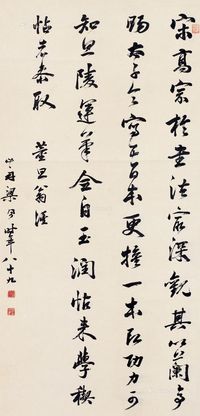 宋高宗於書法最深觀其以蘭亭
賜太子令寫五百本更換一本即功力可
知思陵運筆全自玉潤帖來學禊
帖者參取 董思翁語
山舟梁同書年八十九